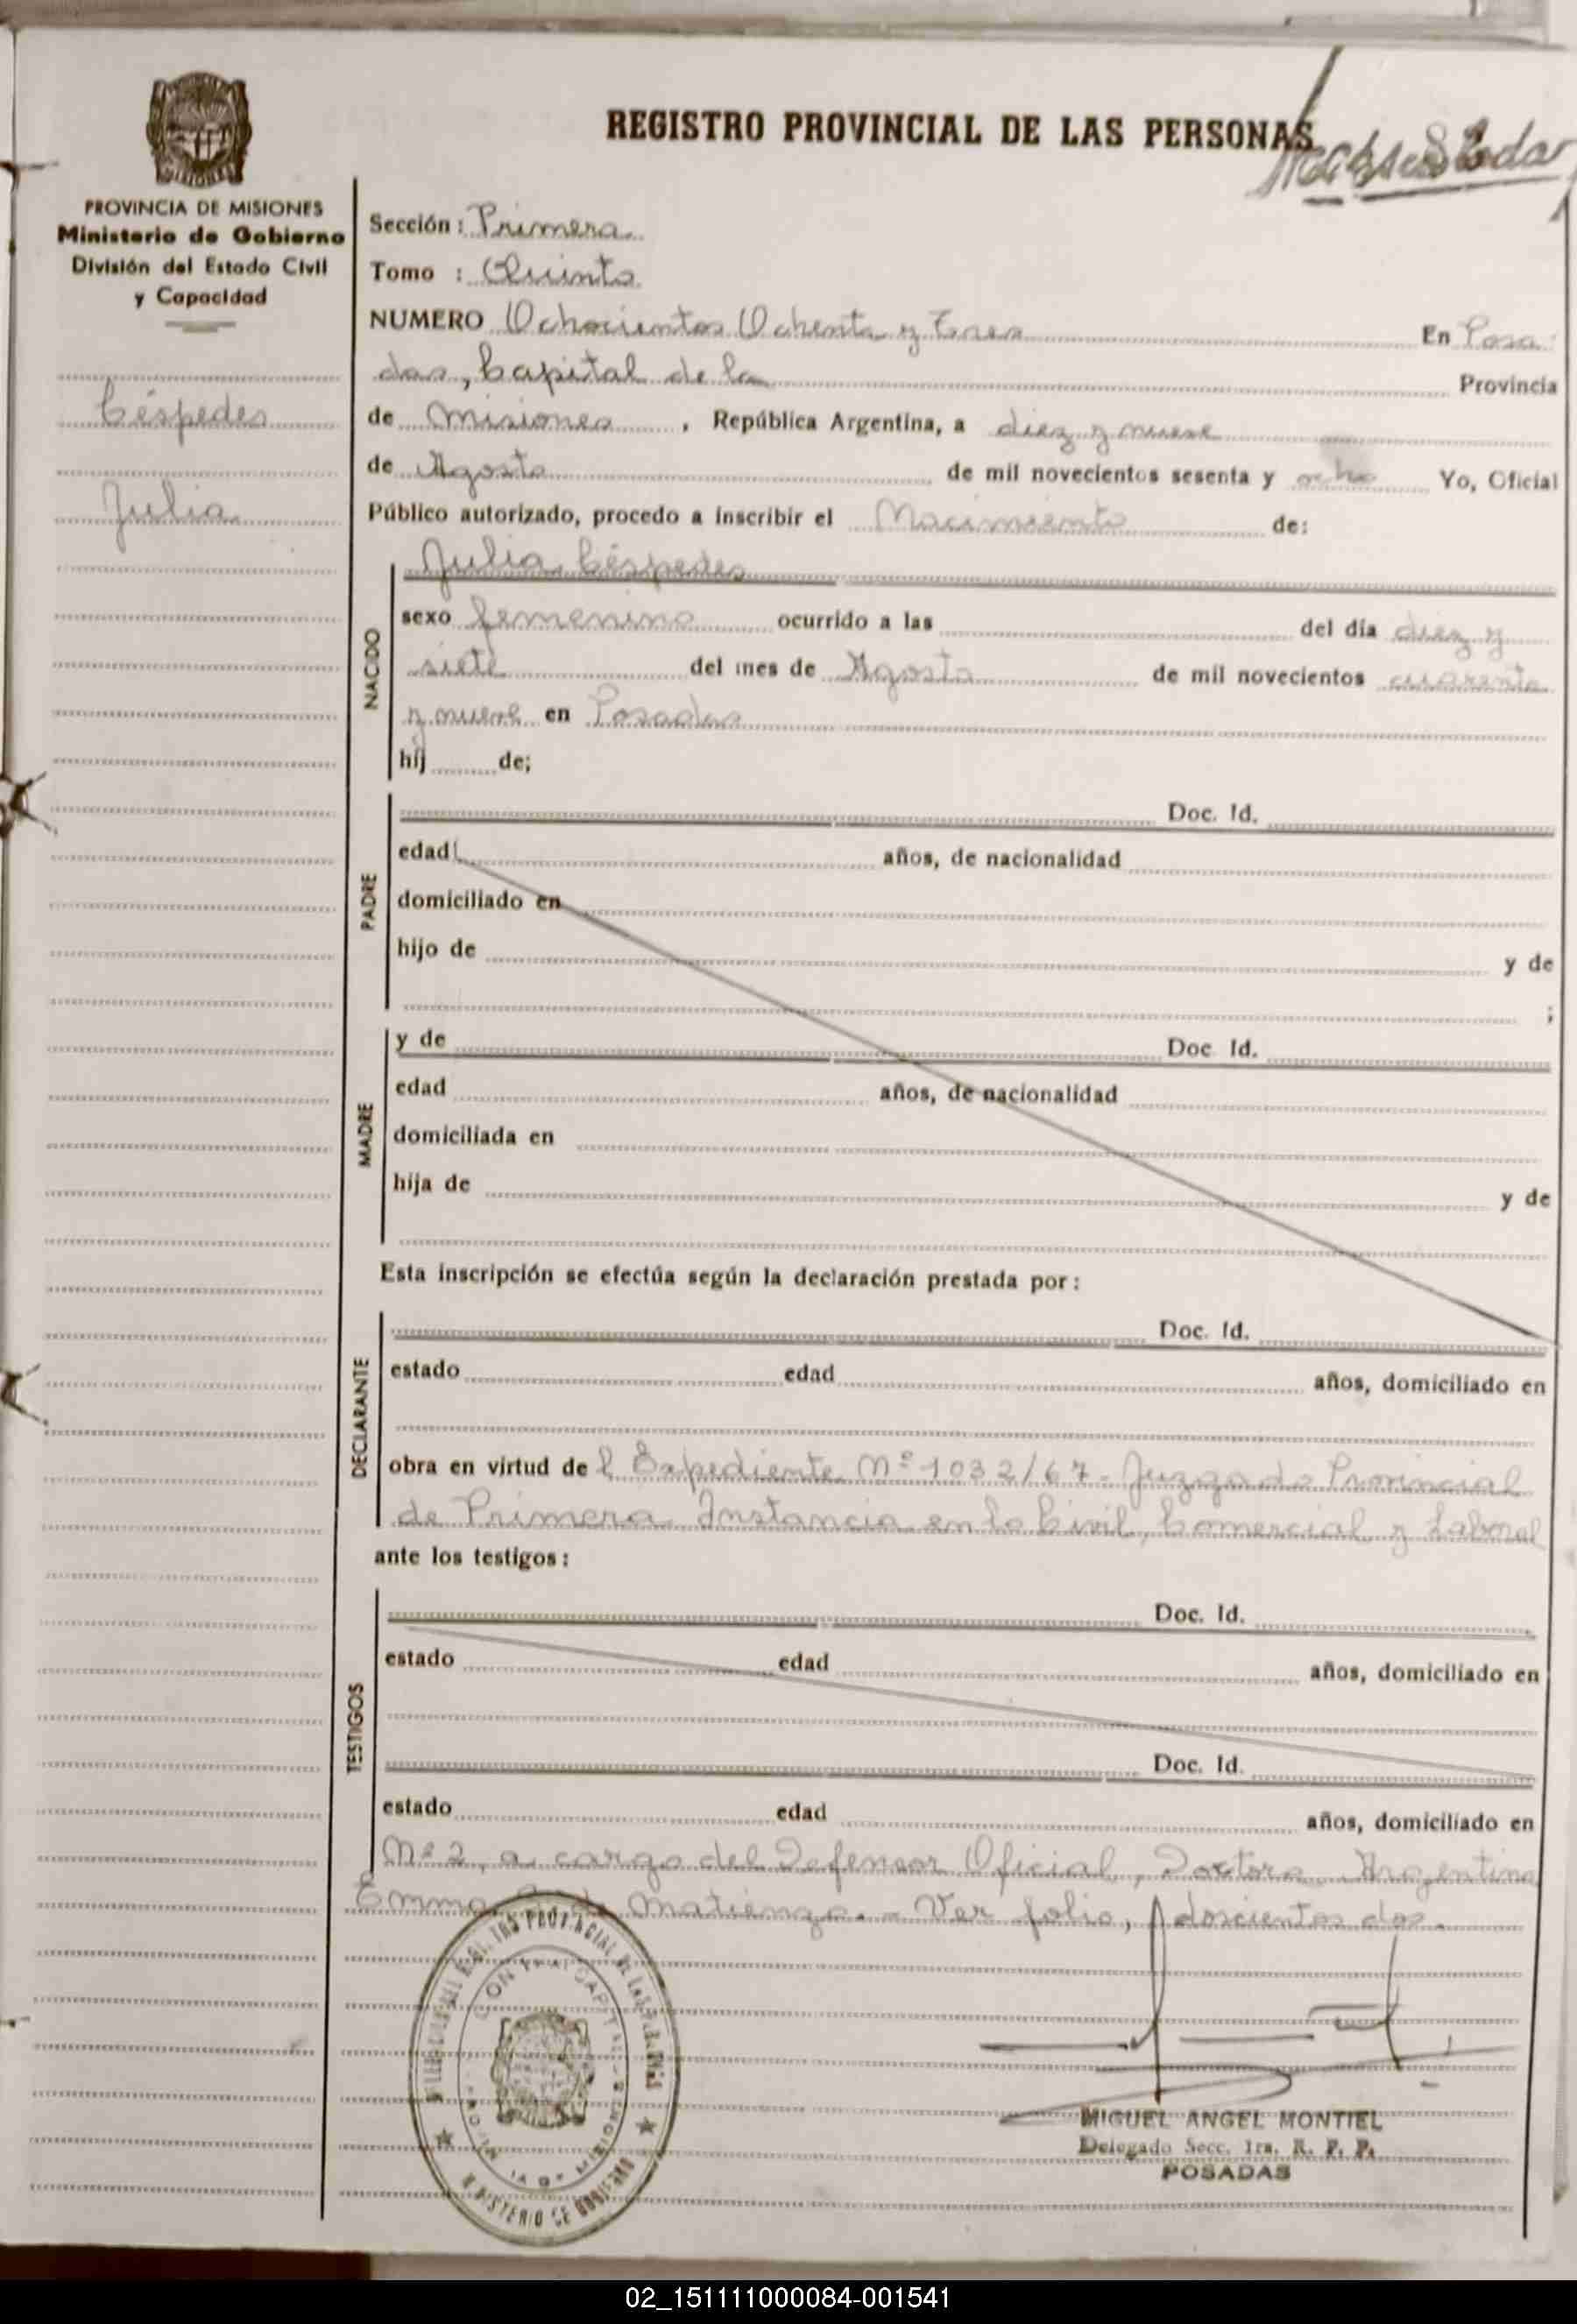 REGISTRO PROVINCIAL DE LAS PERSONAS
PROVINCIA DE MISIONES
Ministerio de Gobierno
División del Estado Civil
y Capacidad
Céspedes
Julia
Sección: Primera
Tomo : Quinto
NUMERO Ochocientos Ochenta y Tres En Posa
das, Capital de la Provincia
de Misiones, República Argentina, a diez y nueve
de Agosto de mil novecientos sesenta y ocho Yo, Oficial
Público autorizado, procedo a inscribir el Nacimiento de:
NACIDO
Julia Céspedes
sexo femenino ocurrido a las del día diez y
siete del mes de Agosto de mil novecientos cuarenta
y nueve en Posadas
hij de;
PADRE
Doc. Id.
edad años, de nacionalidad
domiciliado en
hijo de y de
;
MADRE
y de Doc Id.
edad años, de nacionalidad
domiciliada en
hija de y de
Esta inscripción se efectúa según la declaración prestada por:
DECLARANTE
Doc. Id.
estado edad años, domiciliado en
obra en virtud de l Expediente Nº 1032/67 - Juzgado Provincial
de Primera Instancia en lo Civil, Comercial y Laboral
ante los testigos:
TESTIGOS
Doc. Id.
estado edad años, domiciliado en
Doc. Id.
estado edad años, domiciliado en
Nº 2, a cargo del Defensor Oficial, Doctora Argentina
Emma de Matienzo. - Ver folio, doscientos dos.
MINISTERIO DE GOBIERNO
MIGUEL ANGEL MONTIEL
Delegado Secc. 1ra. R. P. P.
POSADAS
02_151111000084-001541